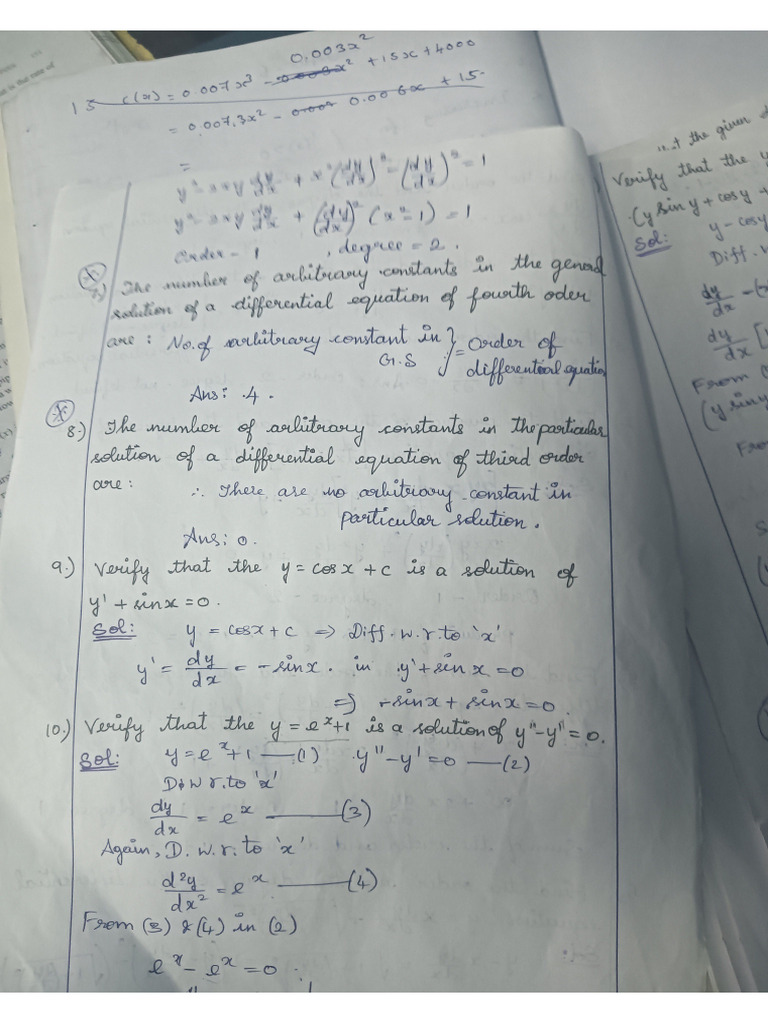 0.003x²
15 C(x) = 0.007x³ - 0.003x² + 15x + 4000
= 0.007.3x² - 0.00 0.006x + 15.
=
y² - 2xy dy/dx + x² (dy/dx)² - (dy/dx)² = 1
y² - 2xy dy/dx + (dy/dx)² (x² - 1) = 1
Order - 1 , degree = 2.
7.) The number of arbitrary constants in the general
solution of a differential equation of fourth oder
are : No. of arbitrary constant in G.S } = Order of differential equation
Ans: 4.
8.) The number of arbitrary constants in the particular
solution of a differential equation of third order
are: ∴ There are no arbitrary constant in
particular solution.
Ans: 0.
9.) Verify that the y = cosx + c is a solution of
y' + sinx = 0.
Sol: y = cosx + c => Diff. w. r. to 'x'
y' = dy/dx = -sinx. in y' + sin x = 0
=> -sinx + sinx = 0.
10.) Verify that the y = eˣ+1 is a solution of y" - y" = 0.
Sol: y = eˣ + 1 — (1) y" - y' = 0 — (2)
D. w r. to 'x'
dy/dx = eˣ — (3)
Again, D. w. r. to 'x'
d²y/dx² = eˣ — (4)
From (3) & (4) in (2)
eˣ - eˣ = 0
the given
Verify that the y
(y sin y + cos y +
Sol: y - cos y
Diff. w
dy/dx
dy/dx [
From (
(y sin y
Fro